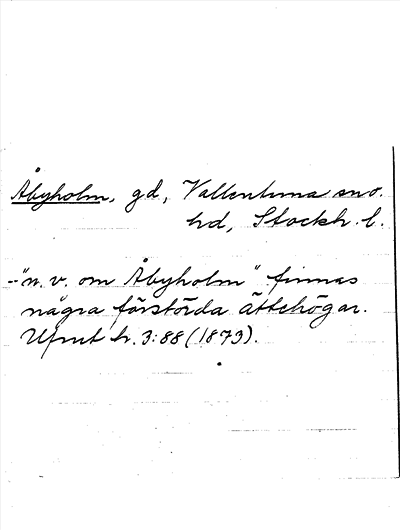 Åbyholm, gd, Vallentuna sn o.
hd, Stockh. l.
"n. v. om Åbyholm" finnas
några förstörda ättehögar.
Ufmt h. 3:88 (1873).